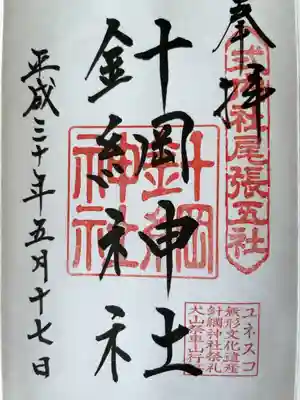 奉拝
式内社尾張五社
針綱神社
針綱
神社
平成三十年五月十七日
ユネスコ
無形文化遺産
針綱神社祭礼
犬山祭車山行事